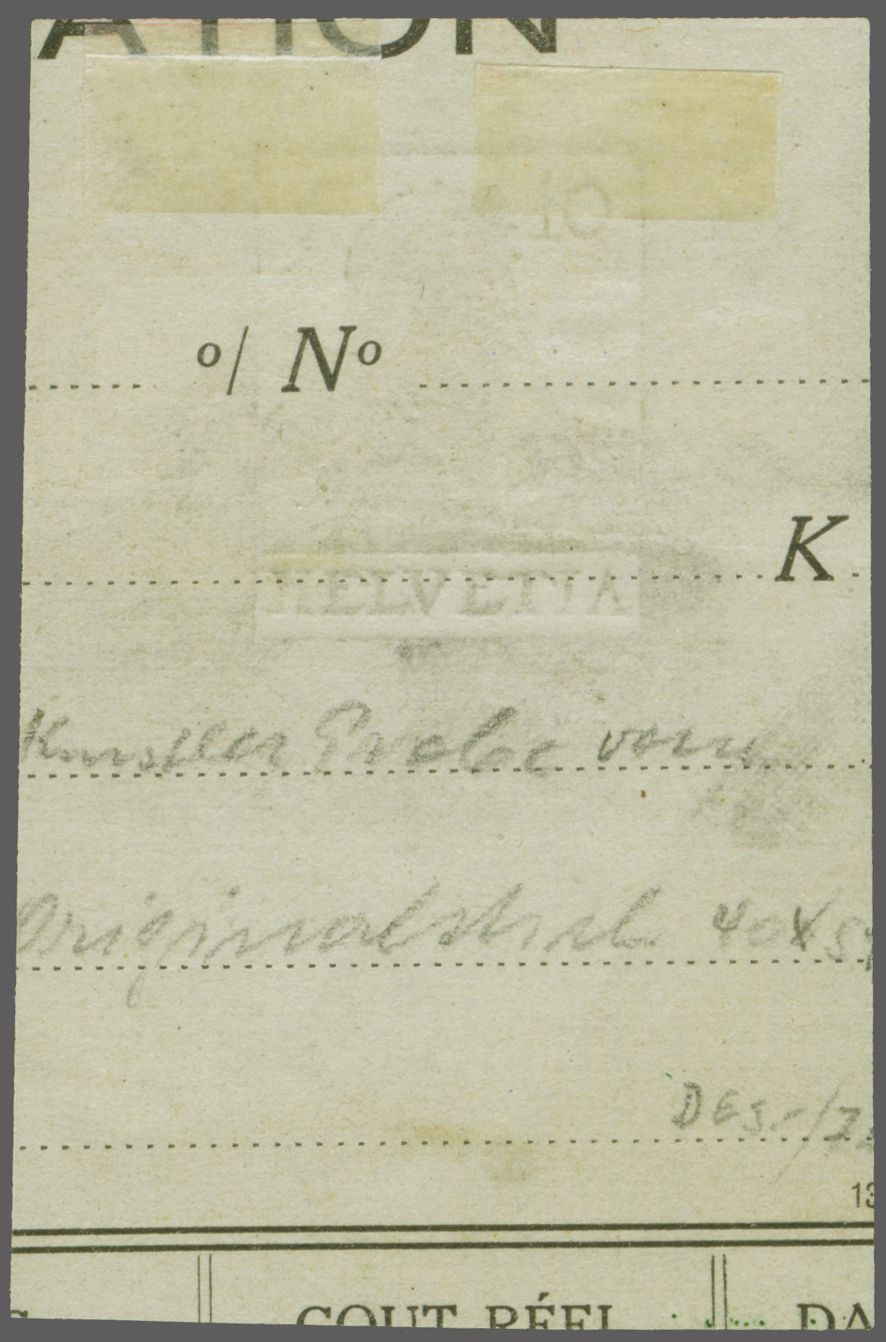 ATION
o/ No
K
HELVETIA
Künstler Probe vom
Originalstich 40x5
DES-/7
13
COUT RÉEL DA